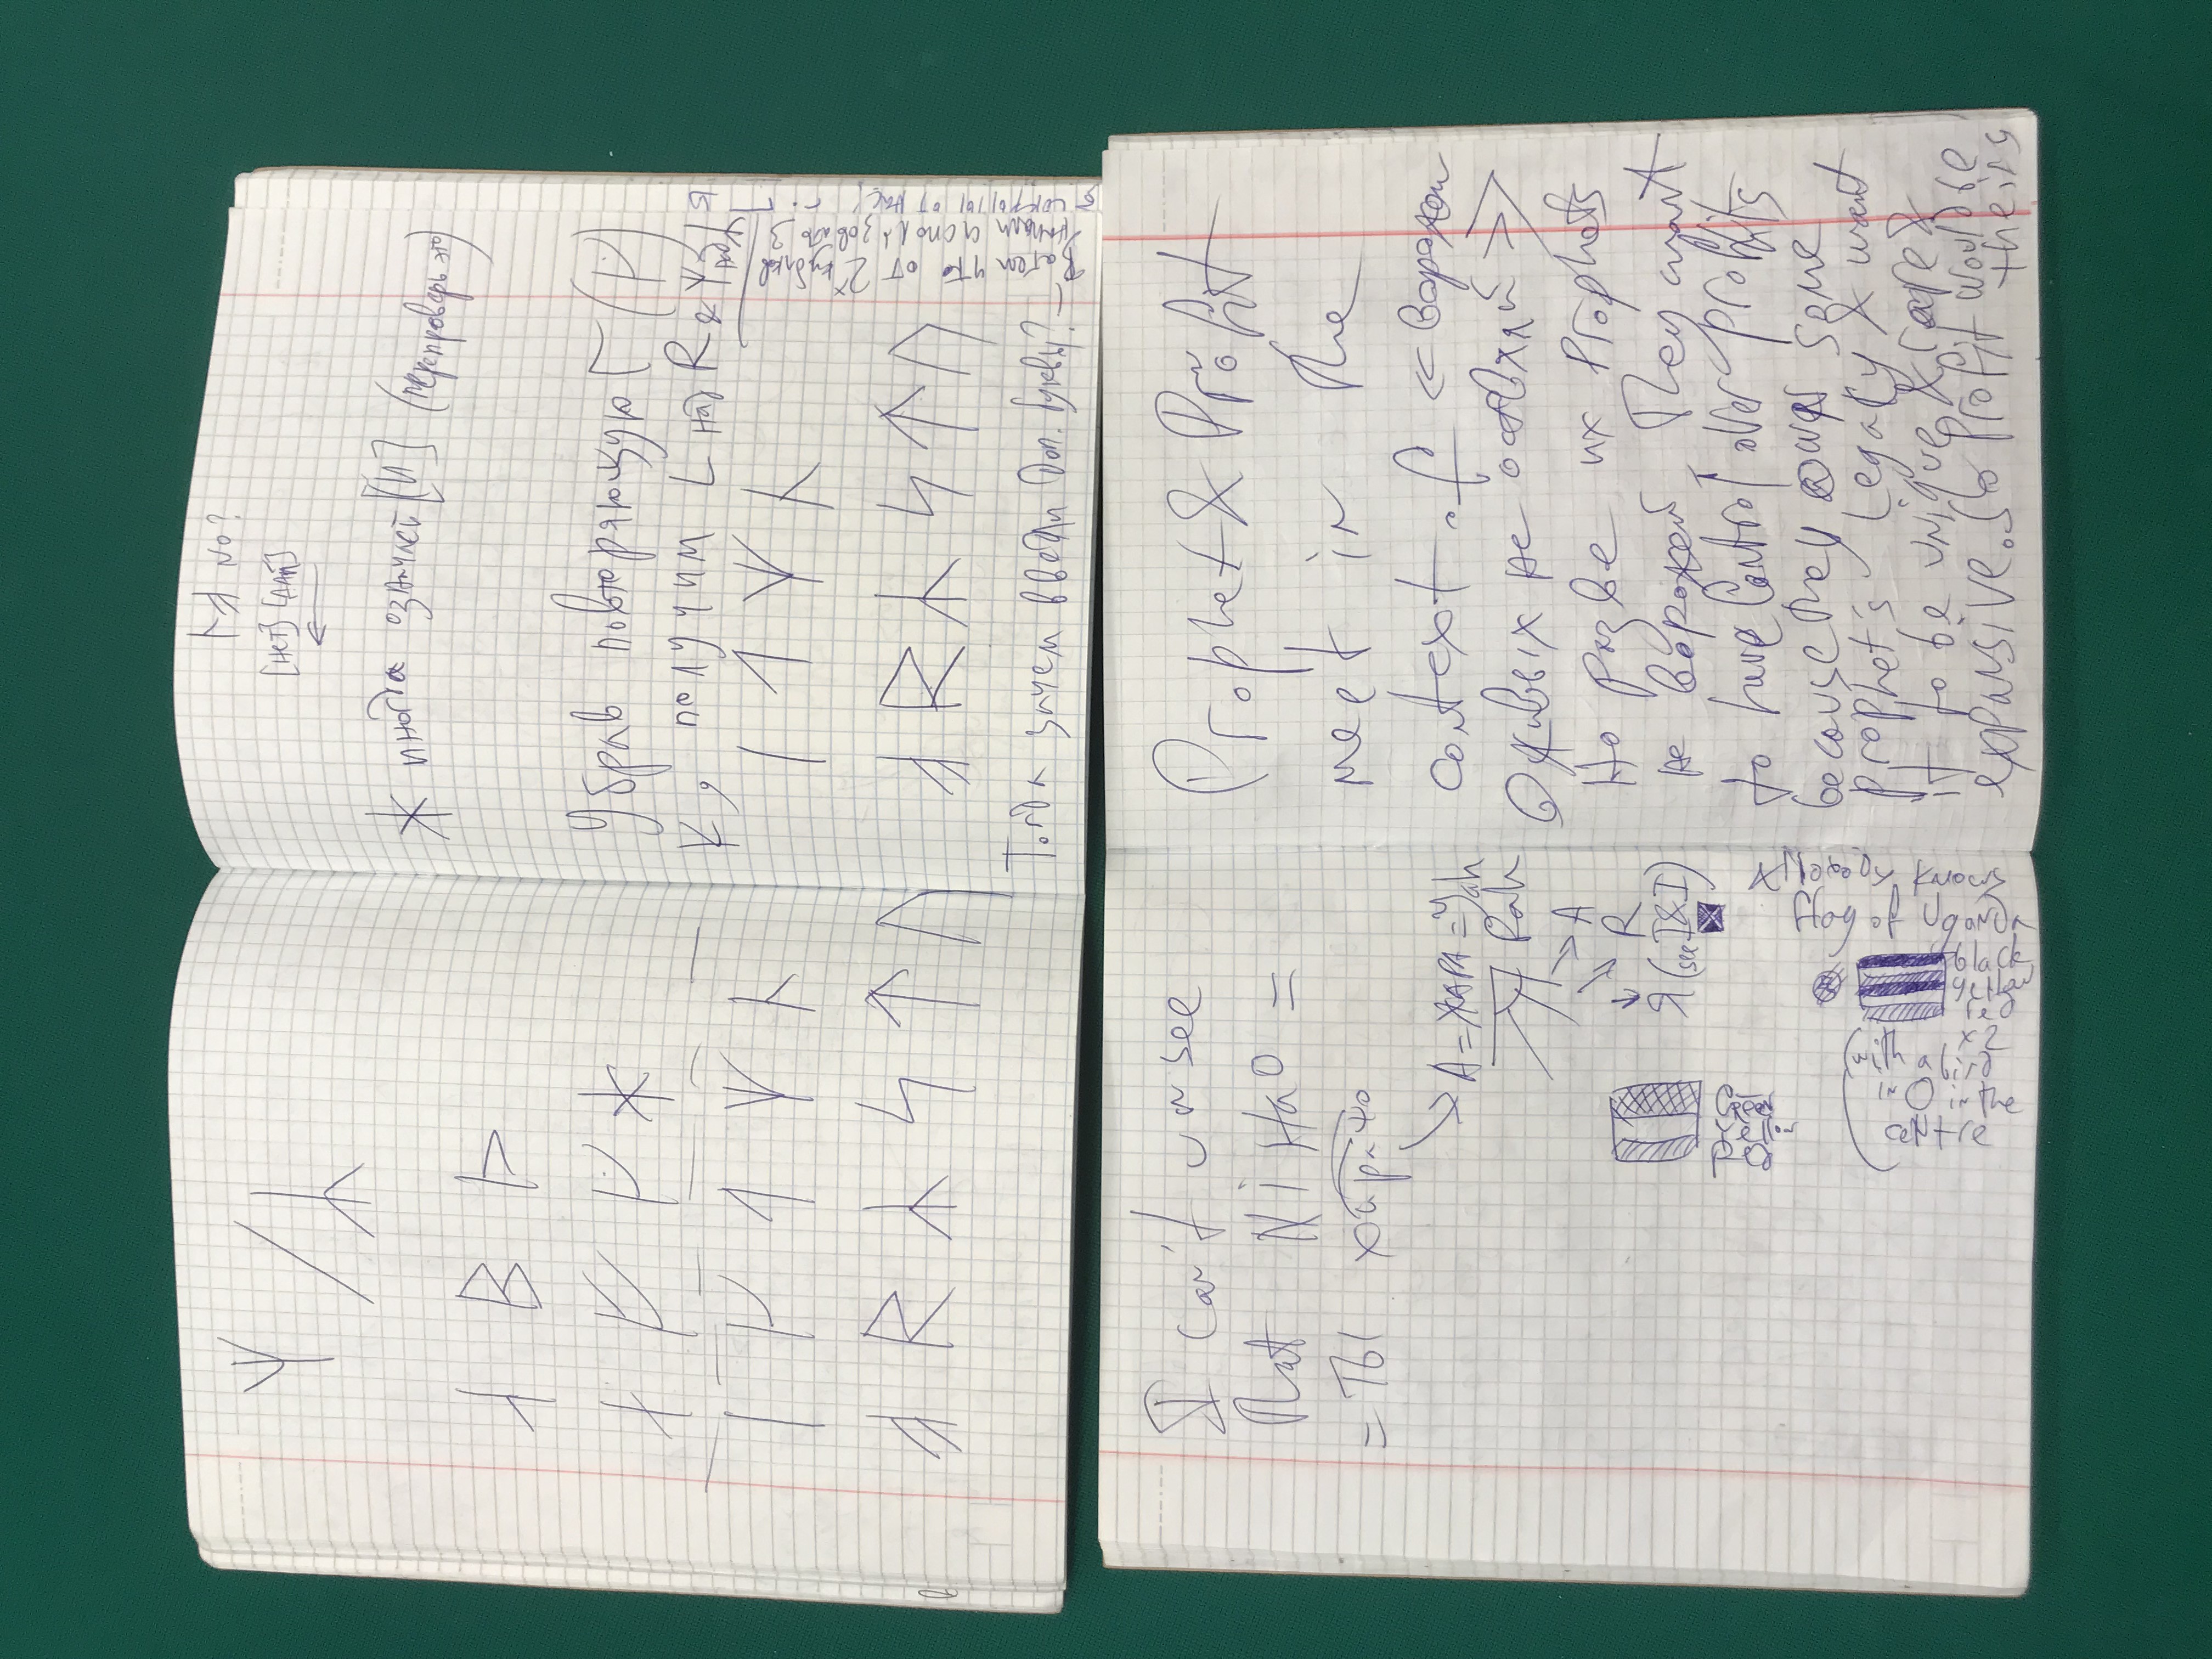 ᛉ / ᛦ
ᛅ ᛒ ᚦ
ᚠ ᚴ *
ᛁ ᚴ ᛚ ᛉ ᚿ
ᚱ ᛦ ᛋ ᛏ ᚢ
NO?
[НЕТ] [ДАЙ]
←
* иногда означает [И] (перепроверь это)
Убрав повторяющую Г (ᚴ)
К, получим L над R & ᛉ над
ᛁ ᛚ ᛉ ᚿ
ᚱ ᛦ ᛋ ᛏ ᚢ
Тогда зачем ввели доп. буквы?
Затем что от 2х кубиков
использовать 3
сокрыты от нас
I can't unsee
that Ni Hao =
= ТЫ
A = ЖАРА = Yah
Rah
A
R
Я (see I&I)
Green
Yellow
Red
x Nobody knows
Flag of Uganda
black
yellow
red
x2
(with a bird
in O in the
ceNtre
Prophet & Profit
meet in the
context of « Ворожеи
живых не оставляй »
Но разве их Prophets
не ворожеи. They want
to have Control over profits
because they own some
prophet's Legacy & want
it to be unique & rare &
expansive. So Profit would be
theirs